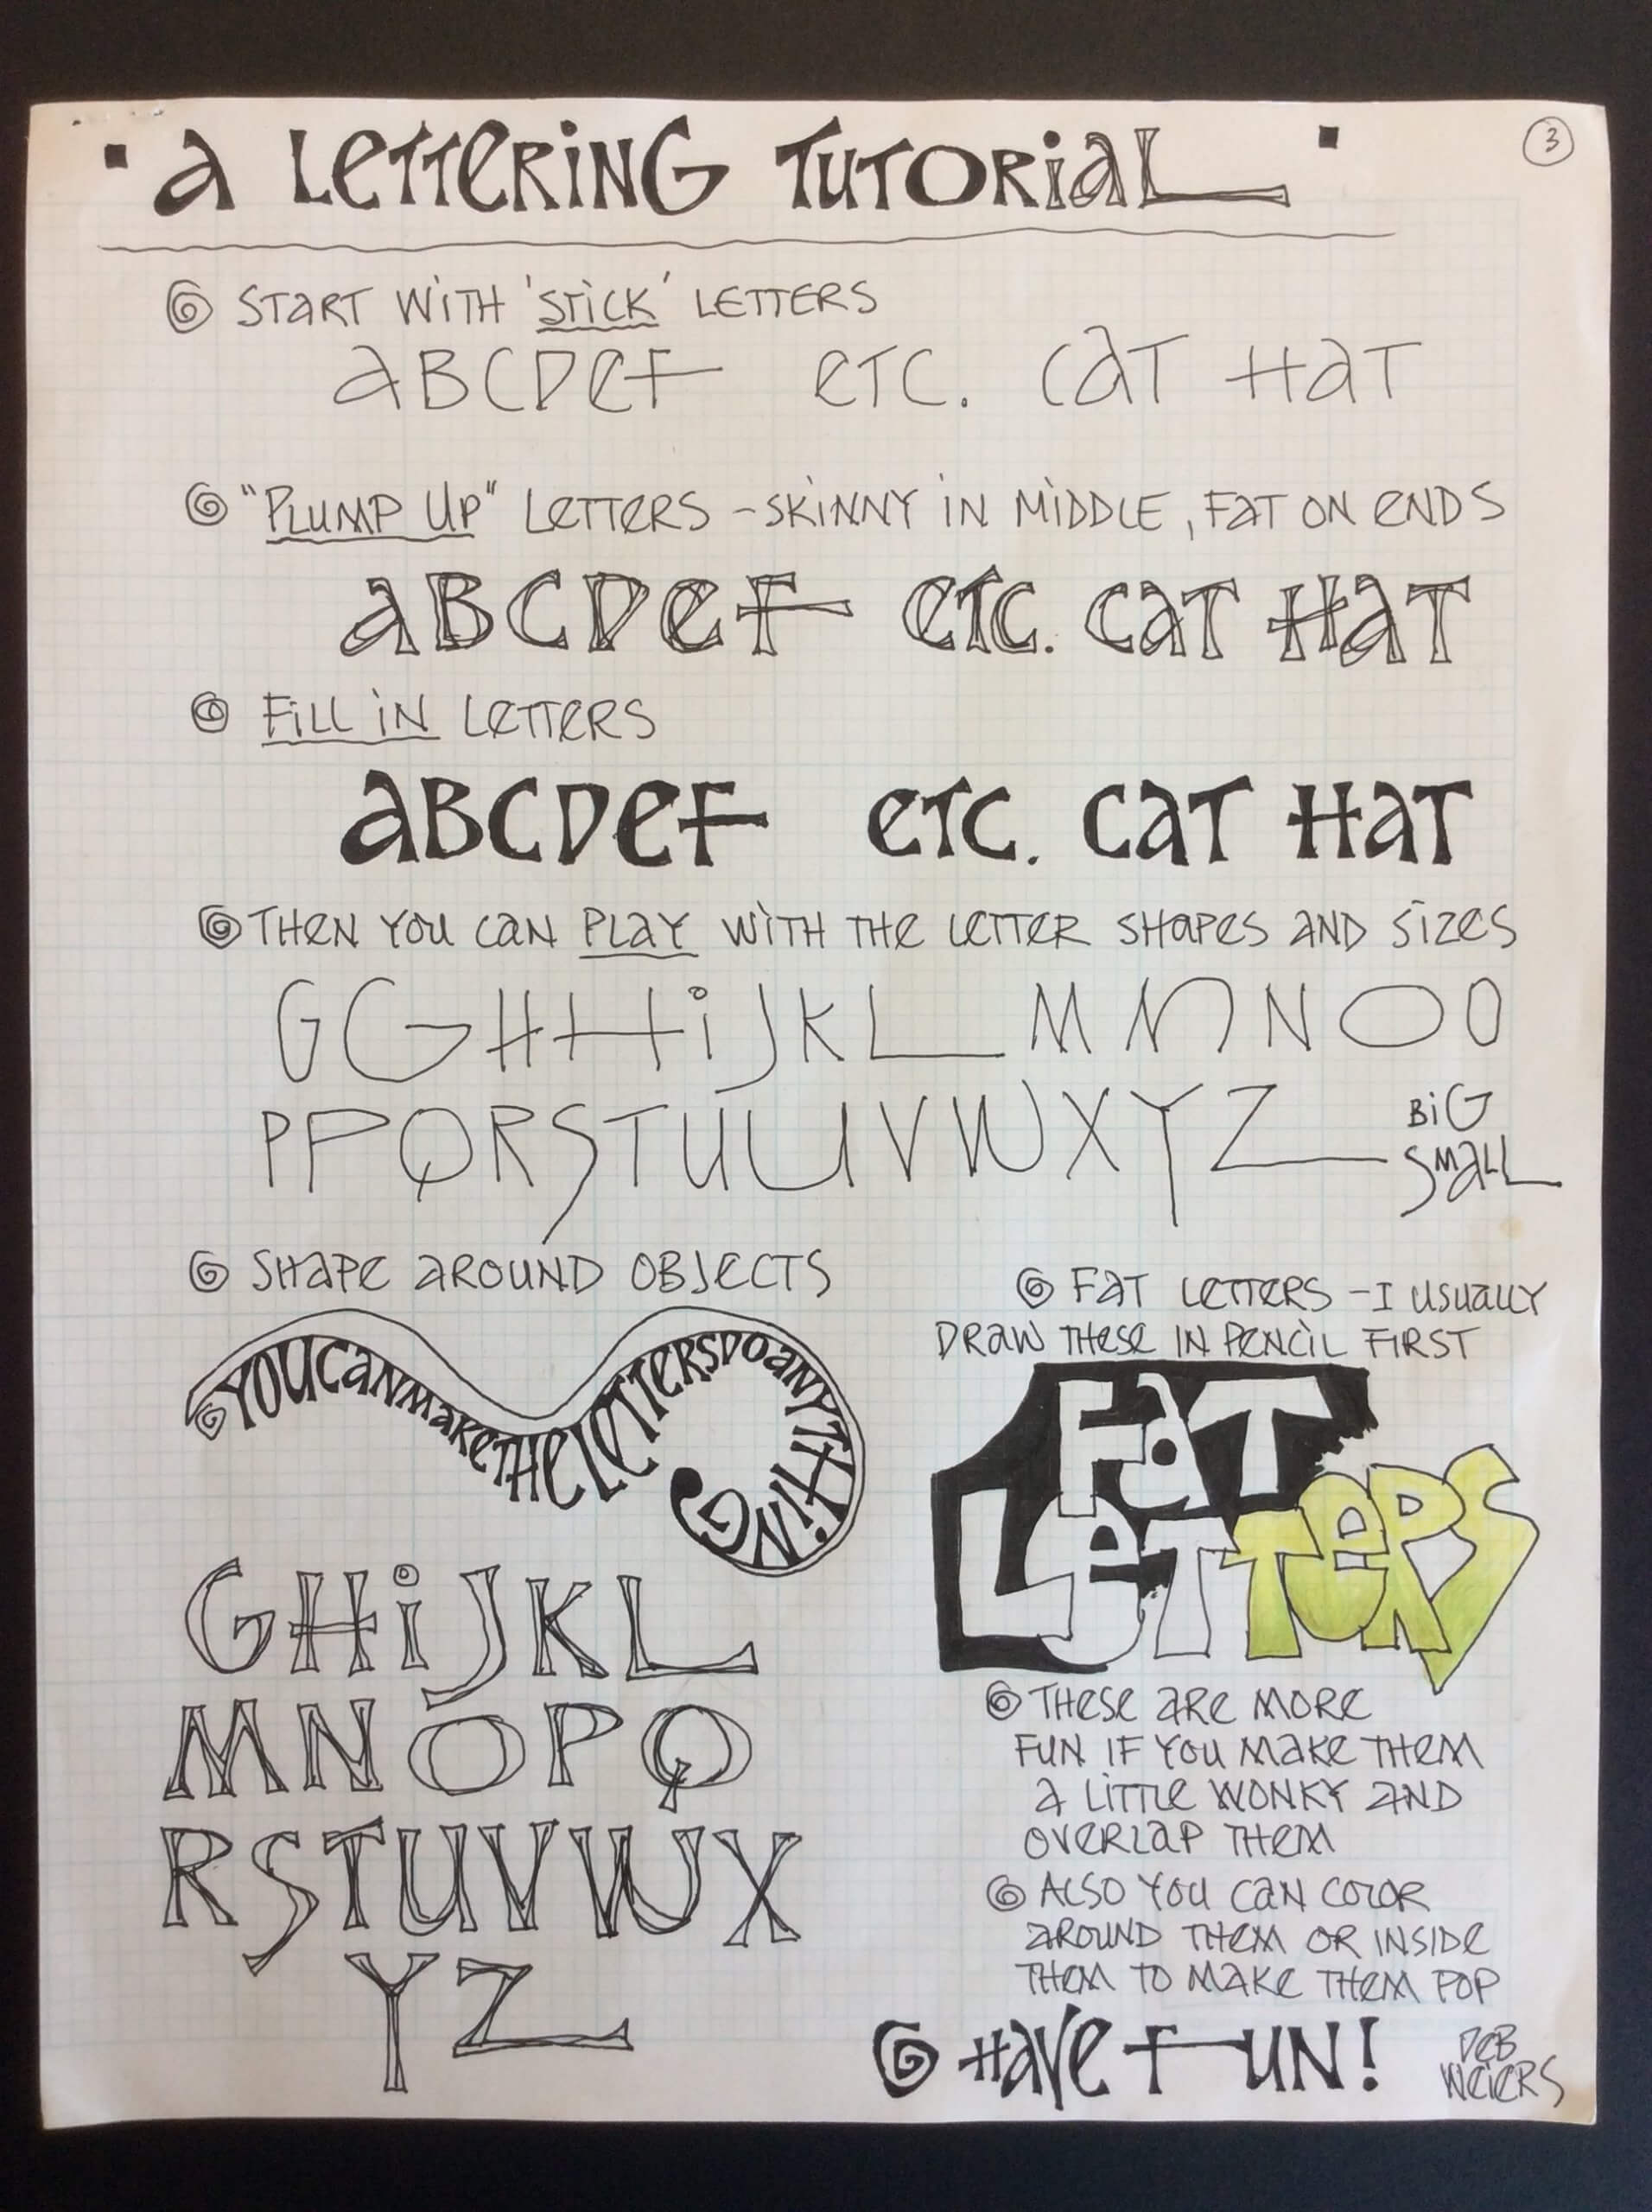 a LeTTeRiNG TUTORiaL
3
START WiTH 'STiCK' LETTERS
aBCDeF eTC. CaT HaT
"PLUMP UP" LeTTeRS - SKiNNY iN MiDDLE, FaT ON eNDS
aBCDeF eTC. CaT HaT
FiLL iN LeTTeRS
aBCDeF eTC. CaT HaT
THeN YOU CaN PLaY WiTH THe LeTTER SHaPeS aND SiZeS
G G H H i J K L M M N N O O
P P Q R S T U U V W X Y Z BiG
SMaLL
SHaPe aROUND OBJeCTS
YOUCaNMaKeTHeLeTTeRSDOaNYTHiNG
GHiJKL
MNOPQ
RSTUVWX
YZ
FaT LeTTeRS - I USUaLLY
DRaW THeSe IN PeNCiL FIRST
FaT
LeTTeRS
THeSe aRe MORe
FUN IF YOU MaKe THeM
a LiTTLe WONKY aND
OVeRLaP THeM
aLSO YOU CaN COLOR
aROUND THeM OR INSIDe
THeM TO MaKe THeM POP
HaVe FUN!
DeB
WeieRS